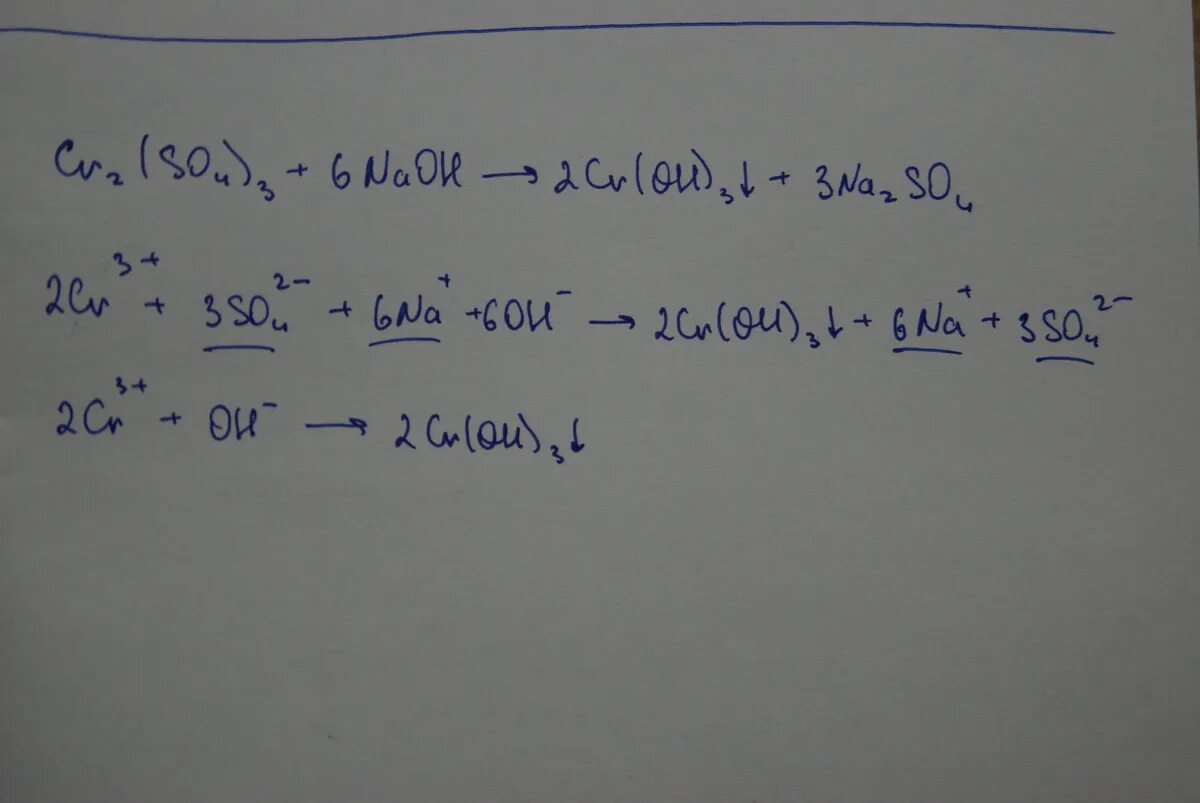 Cr₂(SO₄)₃ + 6NaOH → 2Cr(OH)₃↓ + 3Na₂SO₄
2Cr³⁺ + 3SO₄²⁻ + 6Na⁺ + 6OH⁻ → 2Cr(OH)₃↓ + 6Na⁺ + 3SO₄²⁻
2Cr³⁺ + OH⁻ → 2Cr(OH)₃↓